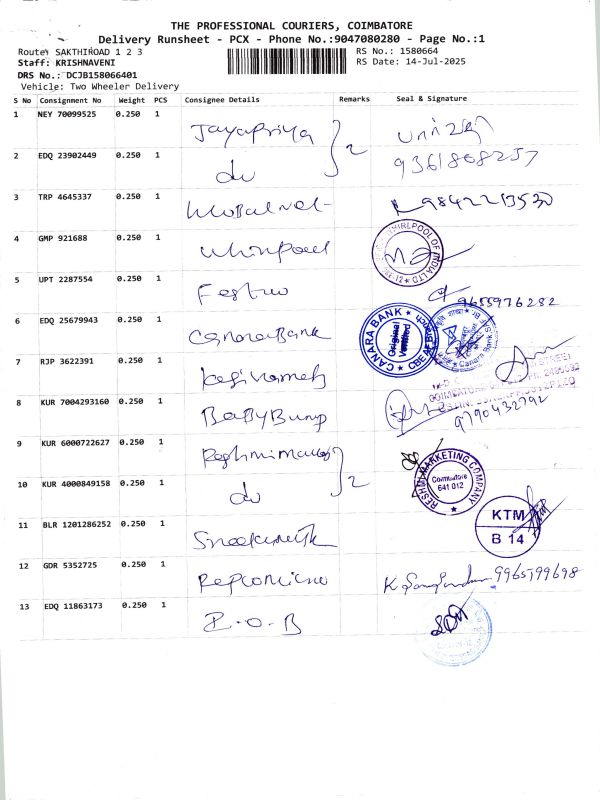 THE PROFESSIONAL COURIERS, COIMBATORE
Delivery Runsheet - PCX - Phone No.:9047080280 - Page No.:1
Route: SAKTHIROAD 1 2 3
RS No.: 1580664
Staff: KRISHNAVENI
RS Date: 14-Jul-2025
DRS No.: DCJB158066401
Vehicle: Two Wheeler Delivery
S No Consignment No Weight PCS Consignee Details Remarks Seal & Signature
1 NEY 70099525 0.250 1 Jayapriya 2
2 EDQ 23902449 0.250 1 do 9361808257
3 TRP 4645337 0.250 1 9842213530
4 GMP 921688 0.250 1 Whirlpool WHIRLPOOL OF INDIA LTD
5 UPT 2287554 0.250 1 9655976282
6 EDQ 25679943 0.250 1 Canara Bank CANARA BANK Original Verified
7 RJP 3622391 0.250 1
8 KUR 7004293160 0.250 1 BabyBump 9790432792
9 KUR 6000722627 0.250 1 2 RESHMI MARKETING COMPANY Coimbatore 641 012
10 KUR 4000849158 0.250 1 do
11 BLR 1201286252 0.250 1 KTM B 14
12 GDR 5352725 0.250 1 9965799698
13 EDQ 11863173 0.250 1 I.O.B